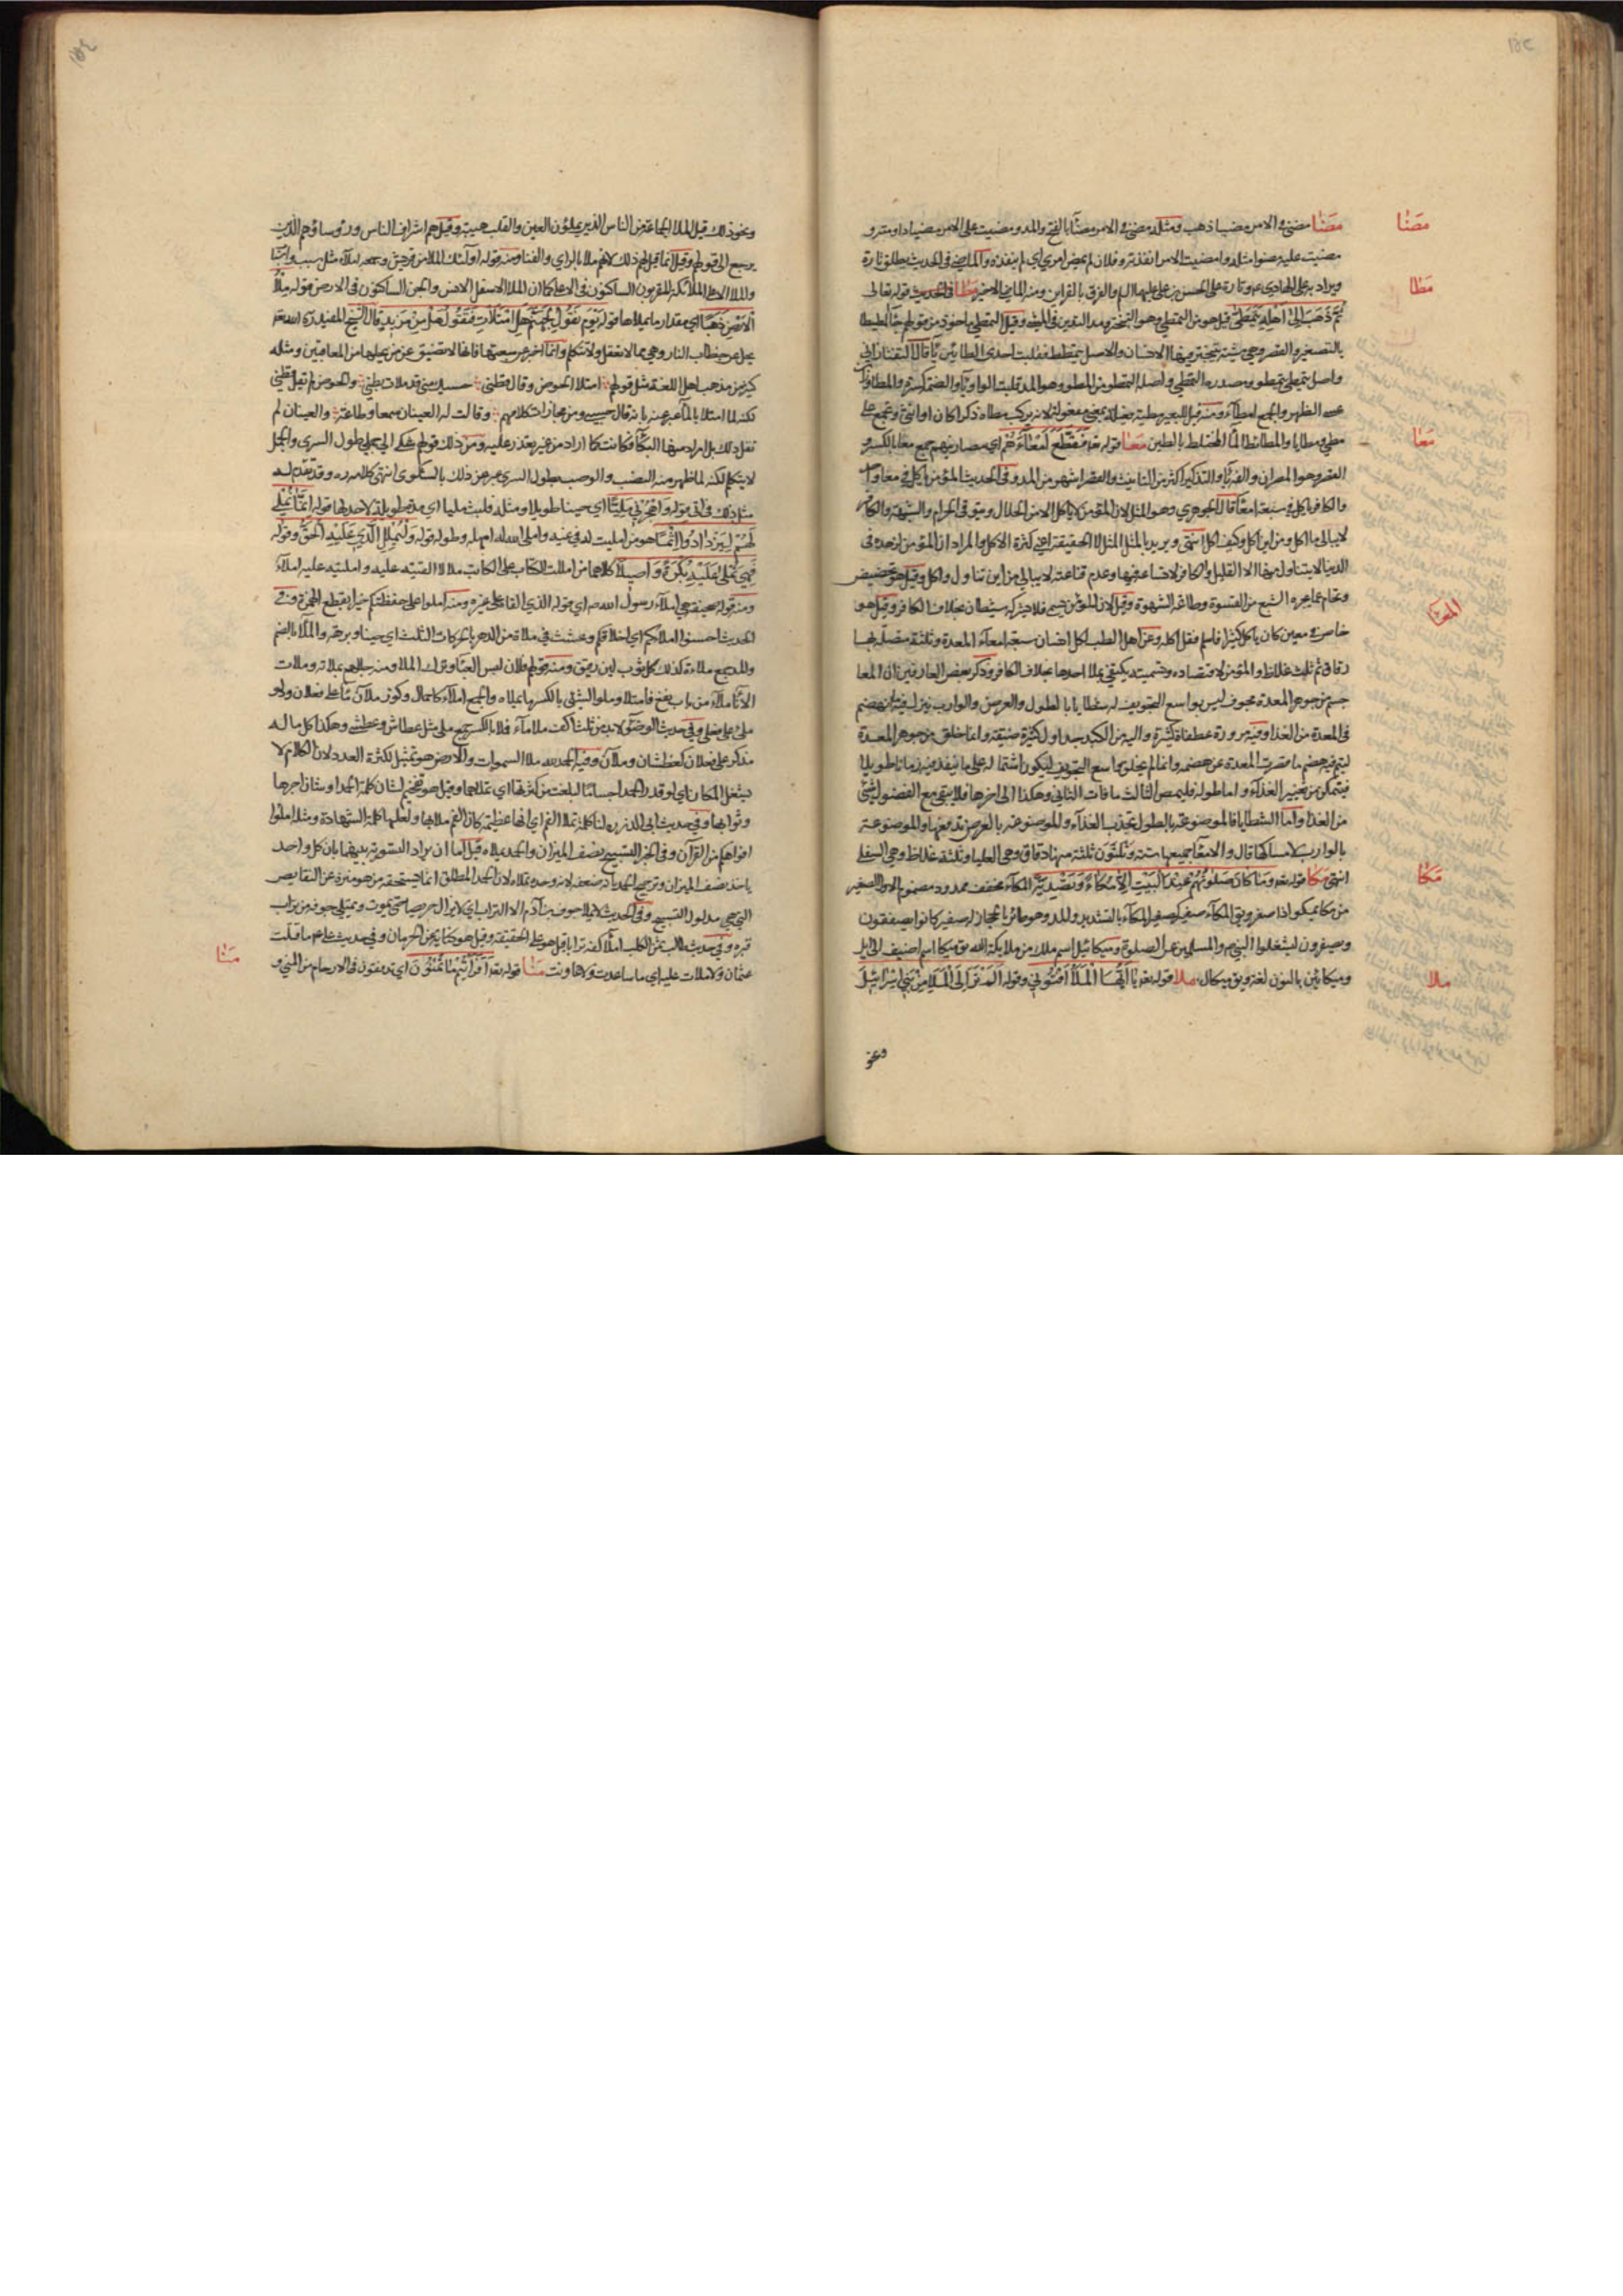 مضا
مضا مضى في الامر مضيا ذهب ومثله مضى في الامر مضاء بالفتح والمد ومضيت على الامر مضيا داومته و
مضيت عليه مضوا مثله وامضيت الامر انفذته وفلان لم يمض امري اي لم ينفذه والماضي في الحديث يطلق تارة
مطا
ويراد به علي الهادي ع وتارة على الحسن بن علي عليهما السلام والفرق بالقراين ومنه الماضي الاخير مطا في الحديث قوله تعالى
ثُمَّ ذَهَبَ إِلَىٰ أَهْلِهِ يَتَمَطَّىٰ قيل هو من التمطي وهو التبختر ومد اليدين في المشي وقيل التمطي ماخوذ من قولهم جاء المطيطا
بالتصغير والقصر وهي مشية يتبختر فيها الانسان والاصل يتمطط فقلبت احدى الطائين ياء قال التفتازاني
واصل تمطى يتمطى ومصدره التمطي واصله التمطو من المطو وهو المد قلبت الواو ياء والضمة كسرة والمطا وزان
عصى الظهر والجمع امطاء ومنه قيل للبعير مطية فعيلة بمعنى مفعولة لانه يركب مطاه ذكرا كان او انثى وتجمع على
معا
مطي ومطايا والمطائط الماء المختلط بالطين معا قوله تعالى فَقَطَّعَ أَمْعَاءَهُمْ اي مصارينهم جمع معا بالكسر و
القصر وهو المصران والفه ياء والتذكير اكثر من التانيث والقصر اشهر من المد وفي الحديث المؤمن ياكل في معا واحد
والكافر ياكل في سبعة امعاء قال الجوهري وهو المثل لان المؤمن لا ياكل الا من الحلال ويتوقى الحرام والشبهة والكافر
لا يبالي ما اكل ومن اين اكل وكيف اكل انتهى ويريد بالمثل المثل لا الحقيقة اعني كثرة الاكل والمراد ان المؤمن لزهده في
الدنيا لا يتناول منها الا القليل والكافر لاتساعه فيها وعدم قناعته لا يبالي من اين تناول واكل وقيل هو تحضيض
وتحام عما يجره الشبع من القسوة وطاعة الشهوة وقيل لان المؤمن يسمي فلا يشركه شيطان بخلاف الكافر وقيل هو
خاص في معين كان ياكل كثيرا فاسلم فقل اكله وعن اهل الطب لكل انسان سبعة امعاء المعدة وثلثة متصلة بها
رقاق ثم ثلث غلاظ والمؤمن لاقتصاده وتسميته يكتفي بملا احدها بخلاف الكافر وذكر بعض العارفين ان المعا
جسم من جوهر المعدة مجوف ليس بواسع التجويف له شظايا بالطول والعرض والوارب
في المعدة من الغذا وفيه مرورة عطفات كثيرة واليه من الكبد جداول كثيرة ضيقة وانما خلق من جوهر المعدة
ليتم فيه هضم ما قصرت المعدة عن هضمه وانما لم يخلق واسع التجويف ليكون اشتماله على ما ينفذ فيه زمانا طويلا
فيتمكن من تغيير الغذاء واما طوله فليمص الثالث ما فات الثاني وهكذا الى اخرها فلا يبقى مع الفضول شئ
من الغذا واما الشظايا فالموضوعة بالطول تجذب الغذاء والموضوعة بالعرض تدفعه والموضوعة
بالوارب لامساكها قال والامعا جميعها ستة وثلثون ثلثة منها دقاق وهي العليا وثلثة غلاظ وهي السفلى
مكا
انتهى مكا قوله تعالى وَمَا كَانَ صَلَوٰتُهُمْ عِنْدَ الْبَيْتِ إِلَّا مُكَاءً وَتَصْدِيَةً المكاء مخفف ممدود مضموم الاول الصفير
من مكا يمكوا اذا صفر ويق المكاء صفير كصفير المكاء بالتشديد والمد وهو طائر بالحجاز له صفير كانوا يصفقون
ويصفرون ليشغلوا النبي ص والمسلمين عن الصلوة وميكائيل اسم ملك من ملائكة الله يق ميكا اسم اضيف الى ايل
ملا
وميكائين بالنون لغة ويق ميكال ملا قوله تعالى يَا أَيُّهَا الْمَلَأُ أَفْتُونِي وقوله أَلَمْ تَرَ إِلَى الْمَلَإِ مِنْ بَنِي إِسْرَائِيلَ
ونحو
ونحو ذلك قيل الملا الجماعة من الناس الذين يملؤن العين والقلب هيبة وقيل هم اشراف الناس ورؤساؤهم الذين
يرجع الى قولهم وقيل انما قيل لهم ذلك لانهم ملاء بالراي والغنا ومنه قوله اولئك الملا من قريش وجمعه املاء مثل سبب واسباب
والملا الاعلى الملائكة المقربون الساكنون في الاعلى كما ان الملا الاسفل الانس والجن الساكنون في الارض قوله مِلْأُ
الْأَرْضِ ذَهَبًا اي مقدار ما يملاها قوله يَوْمَ نَقُولُ لِجَهَنَّمَ هَلِ امْتَلَأْتِ وَتَقُولُ هَلْ مِنْ مَزِيدٍ قال الشيخ المفيد ره الله تعالى
يجل عن خطاب النار وهي مما لا تعقل ولا تتكلم وانما اخبر عن سعتها فانها لا تضيق عن من يحلها من المعاقبين ومثله
كثير من مذهب اهل اللغة مثل قولهم امتلا الحوض وقال قطني حسبك مني قد ملات بطني والحوض لم يقل قطني
لكنه لما امتلا بالماء عبر عنه بانه قال حسبي ومن مجازات كلامهم وقالت له العينان سمعا وطاعة والعينان لم
تقل ذلك بل اراد منها البكاء فكانت كما اراد من غير تعذر عليه ومن ذلك قولهم شكى الي جملي طول السرى والجمل
لا يتكلم لكنه لما ظهر منه النصب والوصب بطول السرى عبر عن ذلك بالشكوى انتهى كلامه ره وقد تقدم له
مثل ذلك في اتى قوله وَاهْجُرْنِي مَلِيًّا اي حينا طويلا ومثله فلبث مليا اي مدة طويلة لا حد لها قوله إِنَّمَا نُمْلِي
لَهُمْ لِيَزْدَادُوا إِثْمًا هو من امليت له في غيه واملى الله له امهله وطول له قوله وَلْيُمْلِلِ الَّذِي عَلَيْهِ الْحَقُّ وقوله
فَهِيَ تُمْلَىٰ عَلَيْهِ بُكْرَةً وَأَصِيلًا كلاهما من امللت الكتاب على الكاتب ملالا القيته عليه وامليته عليه املاء
ومنه قوله صحيفة هي املاء رسول الله ص اي قوله الذي القاه على غيره ومنه املوا على حفظتكم خيرا وفي
الحديث احسنوا املاءكم اي اخلاقكم وعشت في ملاة من الدهر بالحركات الثلث اي حينا وبرهة والملاء بالضم
والمد جمع ملاءة كذلك كل ثوب لين رقيق ومنه قولهم فلان لبس العبا وترك الملا ومنه جللهم بملائه وملات
الاناء ملا من باب نفع فامتلا وملو الشئ بالكسر ما يملاه والجمع املاء كاحمال وكوز ملان ماء على فعلان ودلو
ملئ على فعلى وفي حديث الوضوء لا بد من ثلث اكف ملاء ماء فلا بالكسر جمع ملى مثل عطاش وعطشى وهكذا كل ما له
مذكر على فعلان كعطشان وملان وفيه الحمد لله ملا السموات والارض هو تمثيل لكثرة العدد لان الكلام لا
يشغل المكان اي لو قدر الحمد اجساما لبلغت من كثرتها ان تملاهما وقيل هو تفخيم لشان كلمة الحمد او شان اجرها
وثوابها وفي حديث ابي الذر ره لنا كلمة تملا الفم اي انها عظيمة كان الفم ملا بها ولعلها كلمة الشهادة ومثله املوا
افواهكم من القرآن وفي الخبر التسبيح نصف الميزان والحمد يملاه قيل اما ان يراد التسوية بينهما بان كل واحد
ياخذ نصف الميزان او ترجيح الحمد بانه ضعفه لانه وحده يملاه لان الحمد المطلق انما يستحقه من هو منزه عن النقايص
التي هي مدلول التسبيح وفي الحديث لا يملا جوف بن آدم الا التراب اي لا يزال حريصا حتى يموت ويمتلي جوفه من تراب
قبره وفي حديث طالب ثمن الكلب املا كفه ترابا قيل هو على الحقيقة وقيل هو كناية عن الحرمان وفي حديث علي ع ما قتلت
منا
عثمان ولا ملات عليه اي ما ساعدت ولا عاونت منا قوله تعالى أَفَرَأَيْتُمْ مَا تُمْنُونَ اي تدفقون في الارحام من المني و